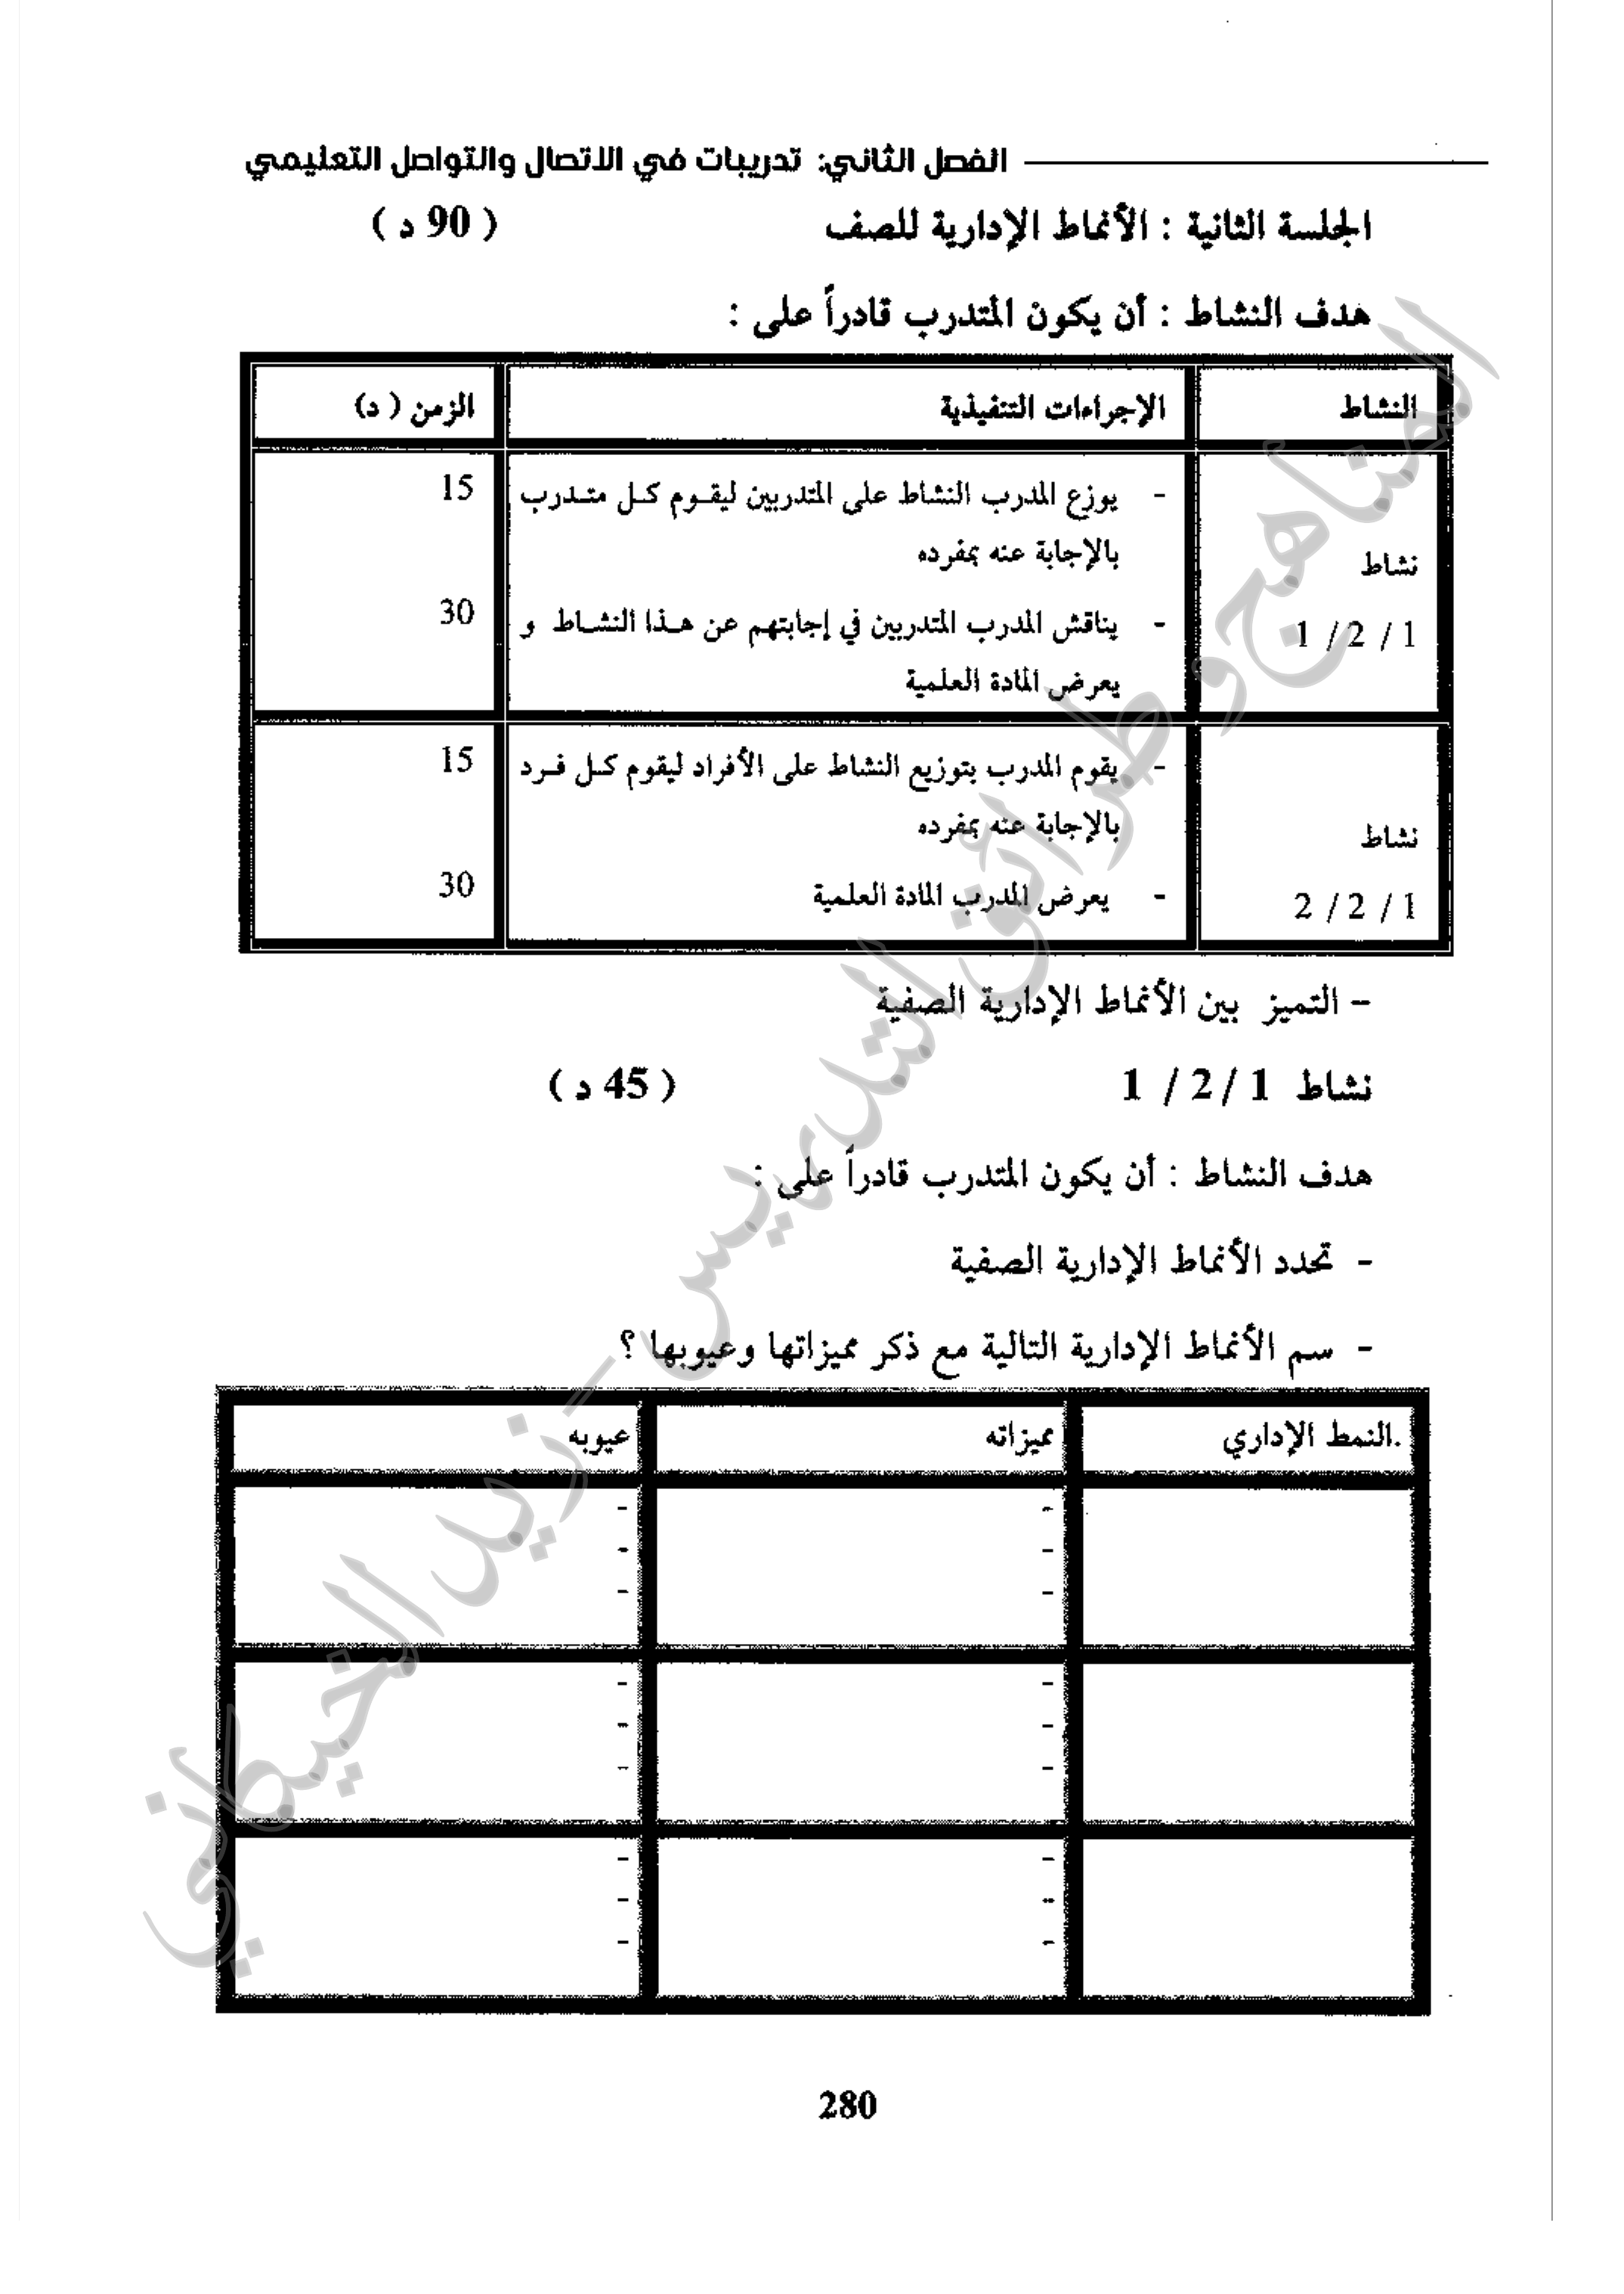 الفصل الثاني: تدريبات في الاتصال والتواصل التعليمي
الجلسة الثانية : الأنماط الإدارية للصف ( 90 د )
هدف النشاط : أن يكون المتدرب قادراً على :
النشاط الإجراءات التنفيذية الزمن ( د)
- يوزع المدرب النشاط على المتدربين ليقوم كل متدرب 15
بالإجابة عنه بمفرده
نشاط
- يناقش المدرب المتدربين في إجابتهم عن هذا النشاط و 30
1 / 2 / 1
يعرض المادة العلمية
- يقوم المدرب بتوزيع النشاط على الأفراد ليقوم كل فرد 15
بالإجابة عنه بمفرده
نشاط
- يعرض المدرب المادة العلمية 30
1 / 2 / 2
– التميز بين الأنماط الإدارية الصفية
نشاط 1 / 2 / 1 ( 45 د )
هدف النشاط : أن يكون المتدرب قادراً على :
- تحدد الأنماط الإدارية الصفية
- سم الأنماط الإدارية التالية مع ذكر مميزاتها وعيوبها ؟
.النمط الإداري مميزاته عيوبه
- -
- -
- -
- -
- -
- -
- -
- -
- -
280
المناهج وطرائق التدريس - زيد الخيكاني